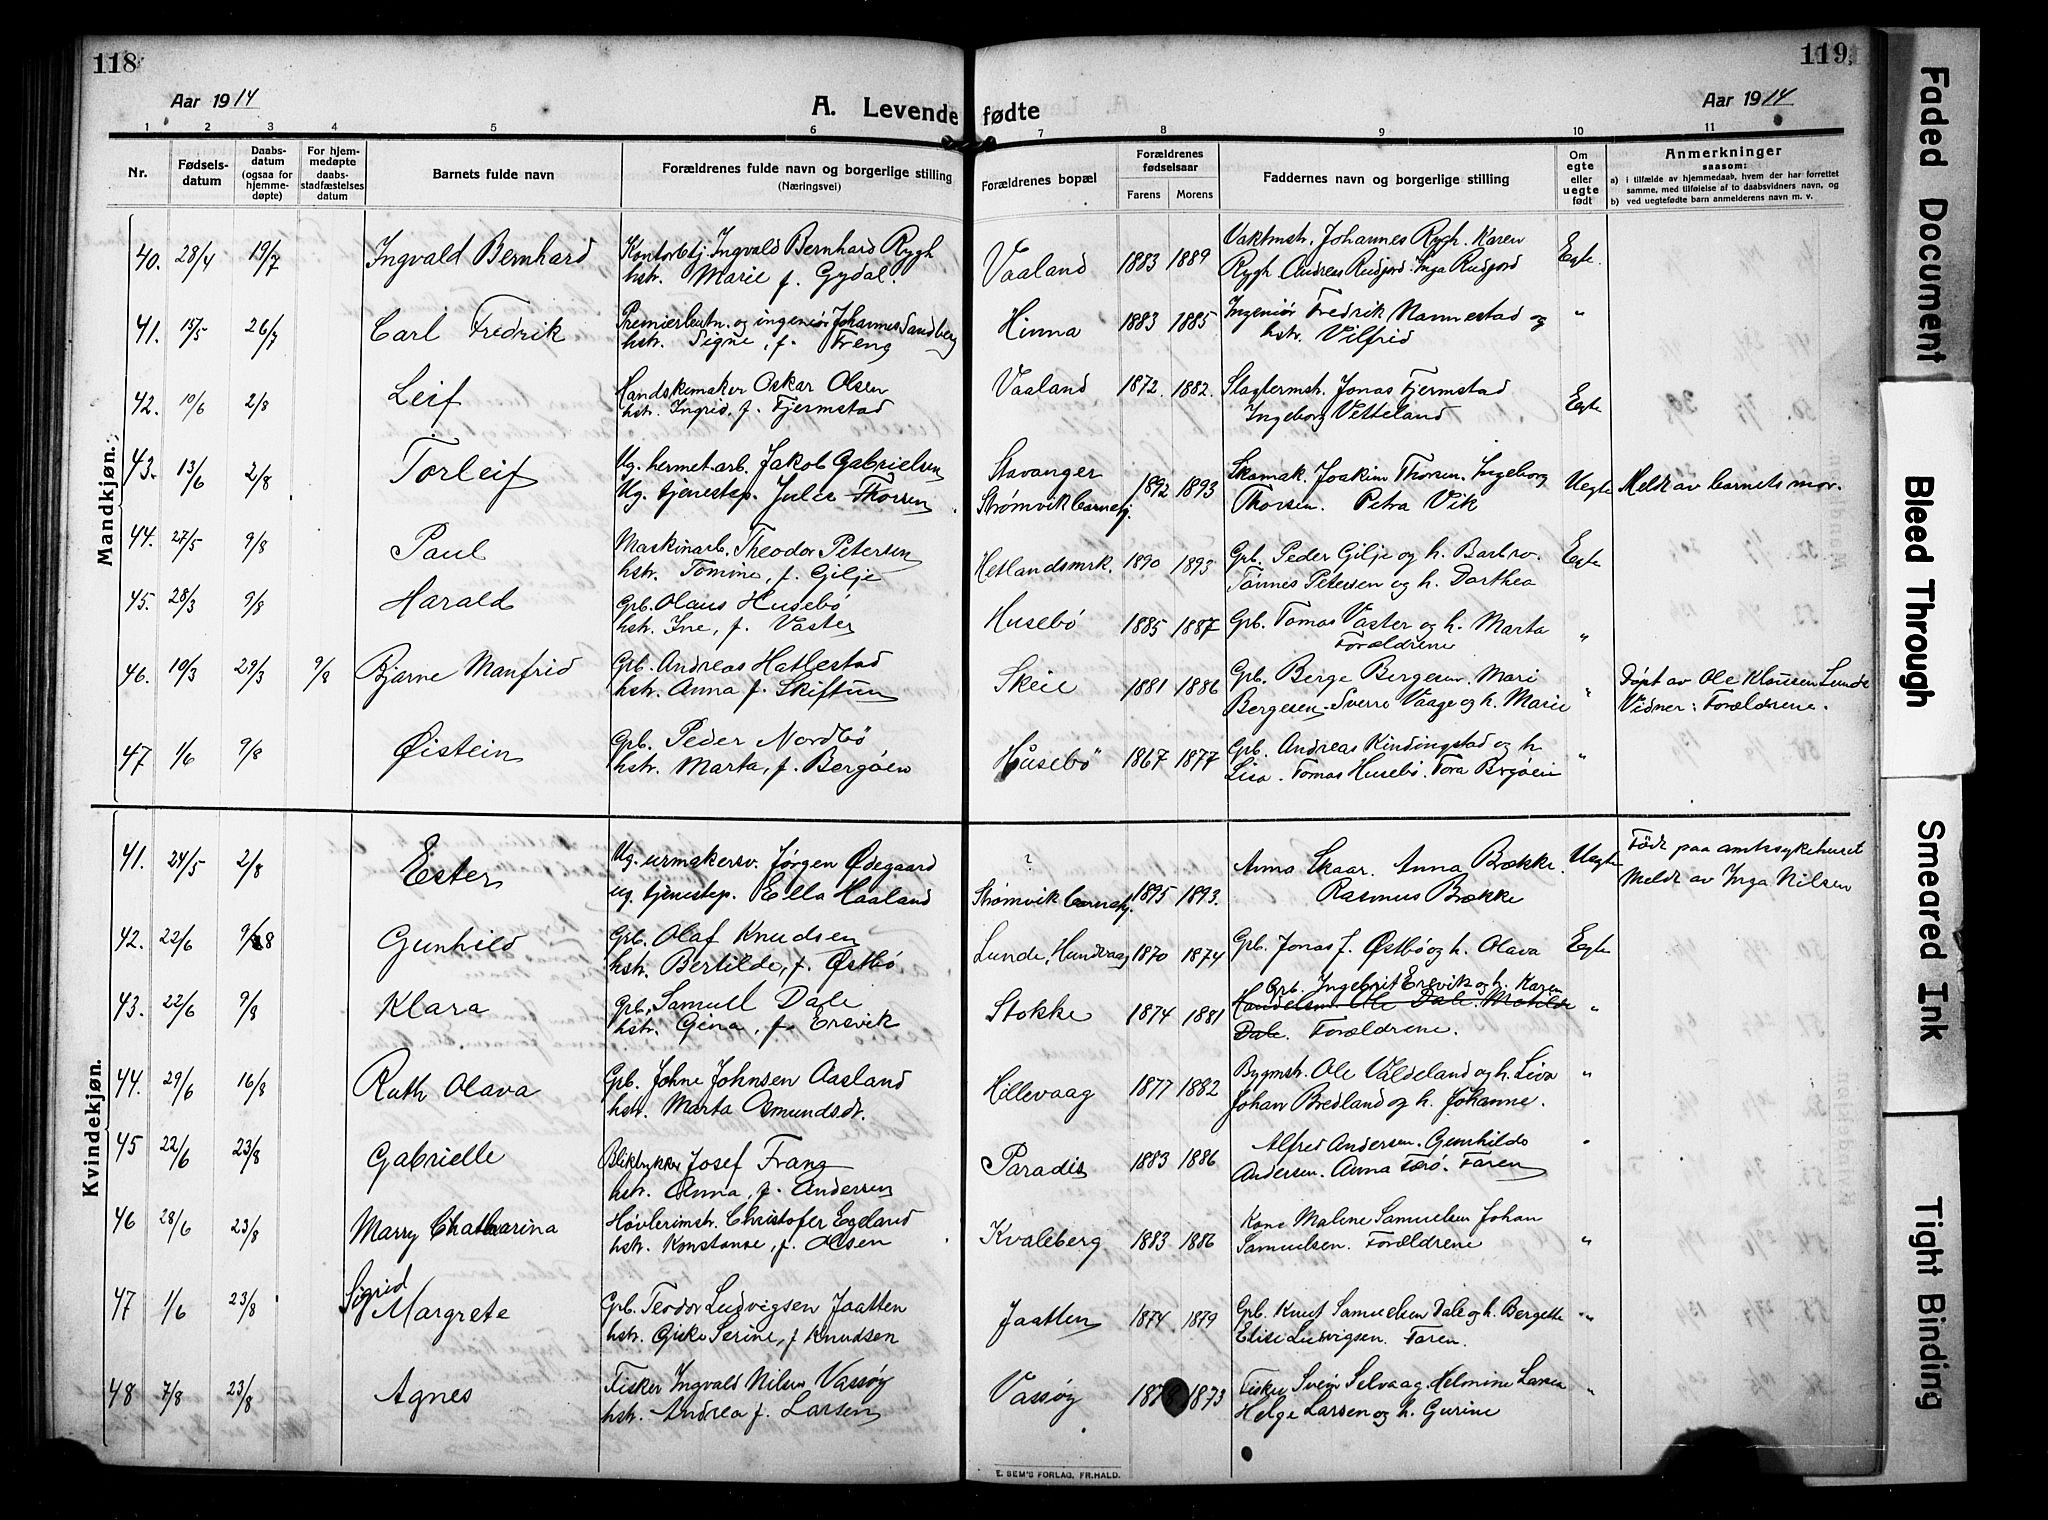 118
119.
Aar 1914
A. Levende fødte
Aar 1914
1 2 3 4 5 6 7 8 9 10 11
Nr.
Fødselsdatum
Daabsdatum (ogsaa for hjemmedøpte)
For hjemmedøpte daabsstadfæstelses datum
Barnets fulde navn
Forældrenes fulde navn og borgerlige stilling
(Næringsvei)
Forældrenes bopæl
Forældrenes fødselsaar
Farens Morens
Faddernes navn og borgerlige stilling
Om egte eller uegte født
Anmerkninger
saasom:
a) i tilfælde av hjemmedaab, hvem der har forrettet
samme, med tilføielse af to daabsvidners navn, og
b) ved uegtefødte barn anmelderens navn m. v.
Mandkjøn.
40. 28/4 19/7 Ingvald Bernhard Kontorbtj. Ingvald Bernhard Rygh Vaaland 1883 1889 Vaktmstr. Johannes Rygh. Karen Egte.
hstr. Marie f. Gydal. Rygh Andreas Rudjord. Inga Rudjord
41. 15/5 26/7 Carl Fredrik Premierleutn. og ingeniør Johannes Sandberg Hinna 1883 1885 Ingeniør Fredrik Nannestad og "
hstr. Signe, f. Treng hstr. Vilfrid
42. 10/6 2/8 Leif Handskemaker Oskar Olsen Vaaland 1872 1882. Slagtermstr. Jonas Tjermstad Egte
hstr. Ingrid, f. Tjermstad Ingeborg Vetteland
43. 13/6 2/8 Torleif Ug. hermet.arb. Jakob Gabrielsen Stavanger 1892 1893 Skomak. Joakim Thorsen. Ingeborg Uegte Meldt av barnets mor.
Ug. tjenestep. Julie Thorsen Strømvik barnehj. Thorsen. Petra Vik
44. 27/5 9/8 Paul Maskinarb. Theodor Petersen Hetlandsmrk. 1890 1893 Grb. Peder Gilje og h. Barbro. Egte
hstr. Tomine, f. Gilje Tønnes Petersen og h. Dorthea
45. 28/3 9/8 Harald Grb. Olaus Husebö Husebö 1885 1887 Grb. Tomas Vaster og h. Marta "
hstr. Ine, f. Vaster Forældrene
46. 10/3 29/3 9/8 Bjarne Manfrid Grb. Andreas Hatlestad Skeie 1881 1886 Grb. Berge Bergesen. Mari " Døpt av Ole Klausen Lunde
hstr. Anna f. Skiftun Bergesen. Sverre Vaage og h. Marie Vidner: Forældrene.
47 1/6 9/8 Øistein Grb. Peder Nordbö Husebö 1867 1877 Grb. Andreas Kindingstad og h. "
hstr. Marta, f. Bergöen Lisa. Tomas Husebö. Tora Bergöen
Kvindekjøn.
41. 24/5 2/8 Ester Ug. urmakersv. Jørgen Ødegaard ? 1895 1893. Anna Skaar. Anna Brække. Uegte Född paa amtssykehuset
ug. tjenestep. Ella Haaland Strømvik barnehj. Rasmus Brække Meldt av Inga Nilsen
42. 22/6 9/8 Gunhild Grb. Olaf Knudsen Lunde, Hundvaag 1870 1874 Grb. Jonas J. Østbö og h. Olava Egte
hstr. Bertilde, f. Østbö
43. 22/6 9/8 Klara Grb. Samuel Dale Stokke 1874 1881 Grb. Ingebrit Ersvik og h. Karen "
hstr. Gina, f. Ersvik Handelsm. Ole Dale. Matilde
Dale. Forældrene.
44. 29/6 16/8 Ruth Olava Grb. Johne Johnsen Aasland Hillevaag 1877 1882 Bygmstr. Ole Valdeland og h. Liva "
hstr. Marta Osmundsdt. Johan Bredland og h. Johanne.
45 22/6 23/8 Gabrielle Bliktrykker Josef Frang Paradis 1883 1886 Alfred Andersen. Gunhilde "
hstr. Anna, f. Andersen Andersen. Anna Torø. Faren
46 28/6 23/8 Marry Chatharina Høvlerimstr. Christofer Egeland Kvaleberg 1883 1886 Kone Malene Samuelsen Johan "
hstr. Konstanse, f. Olsen Samuelsen. Forældrene
47 1/6 23/8 Sigrid Margrete Grb. Teodor Ludvigsen Jaatten Jaatten 1874 1879 Grb. Knut Samuelsen Dale og h. Bergette "
hstr. Giske Serine, f. Knudsen Elise Ludvigsen. Faren.
48 7/8 23/8 Agnes Fisker Ingvald Nilsen Vassöy Vassöy 1878 1873 Fisker Svein Selvaag. Helmine Larsen "
hstr. Andrea f. Larsen Helge Larsen og h. Gurine
E. SEM'S FORLAG, FR.HALD.
Faded Document
Bleed Through
Smeared Ink
Tight Binding